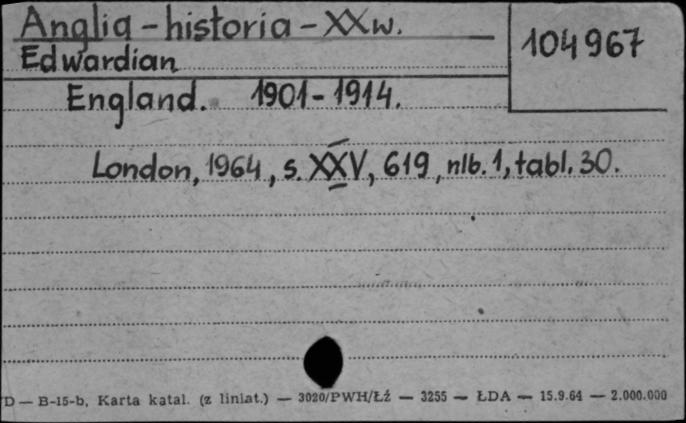 Anglia - historia - XX w.
104967
Edwardian
England. 1901-1914.
London, 1964, s. XXV, 619, nlb. 1, tabl. 30.
D — B-15-b, Karta katal. (z liniat.) — 3020/PWH/Łź — 3255 — ŁDA — 15.9.64 — 2.000.000